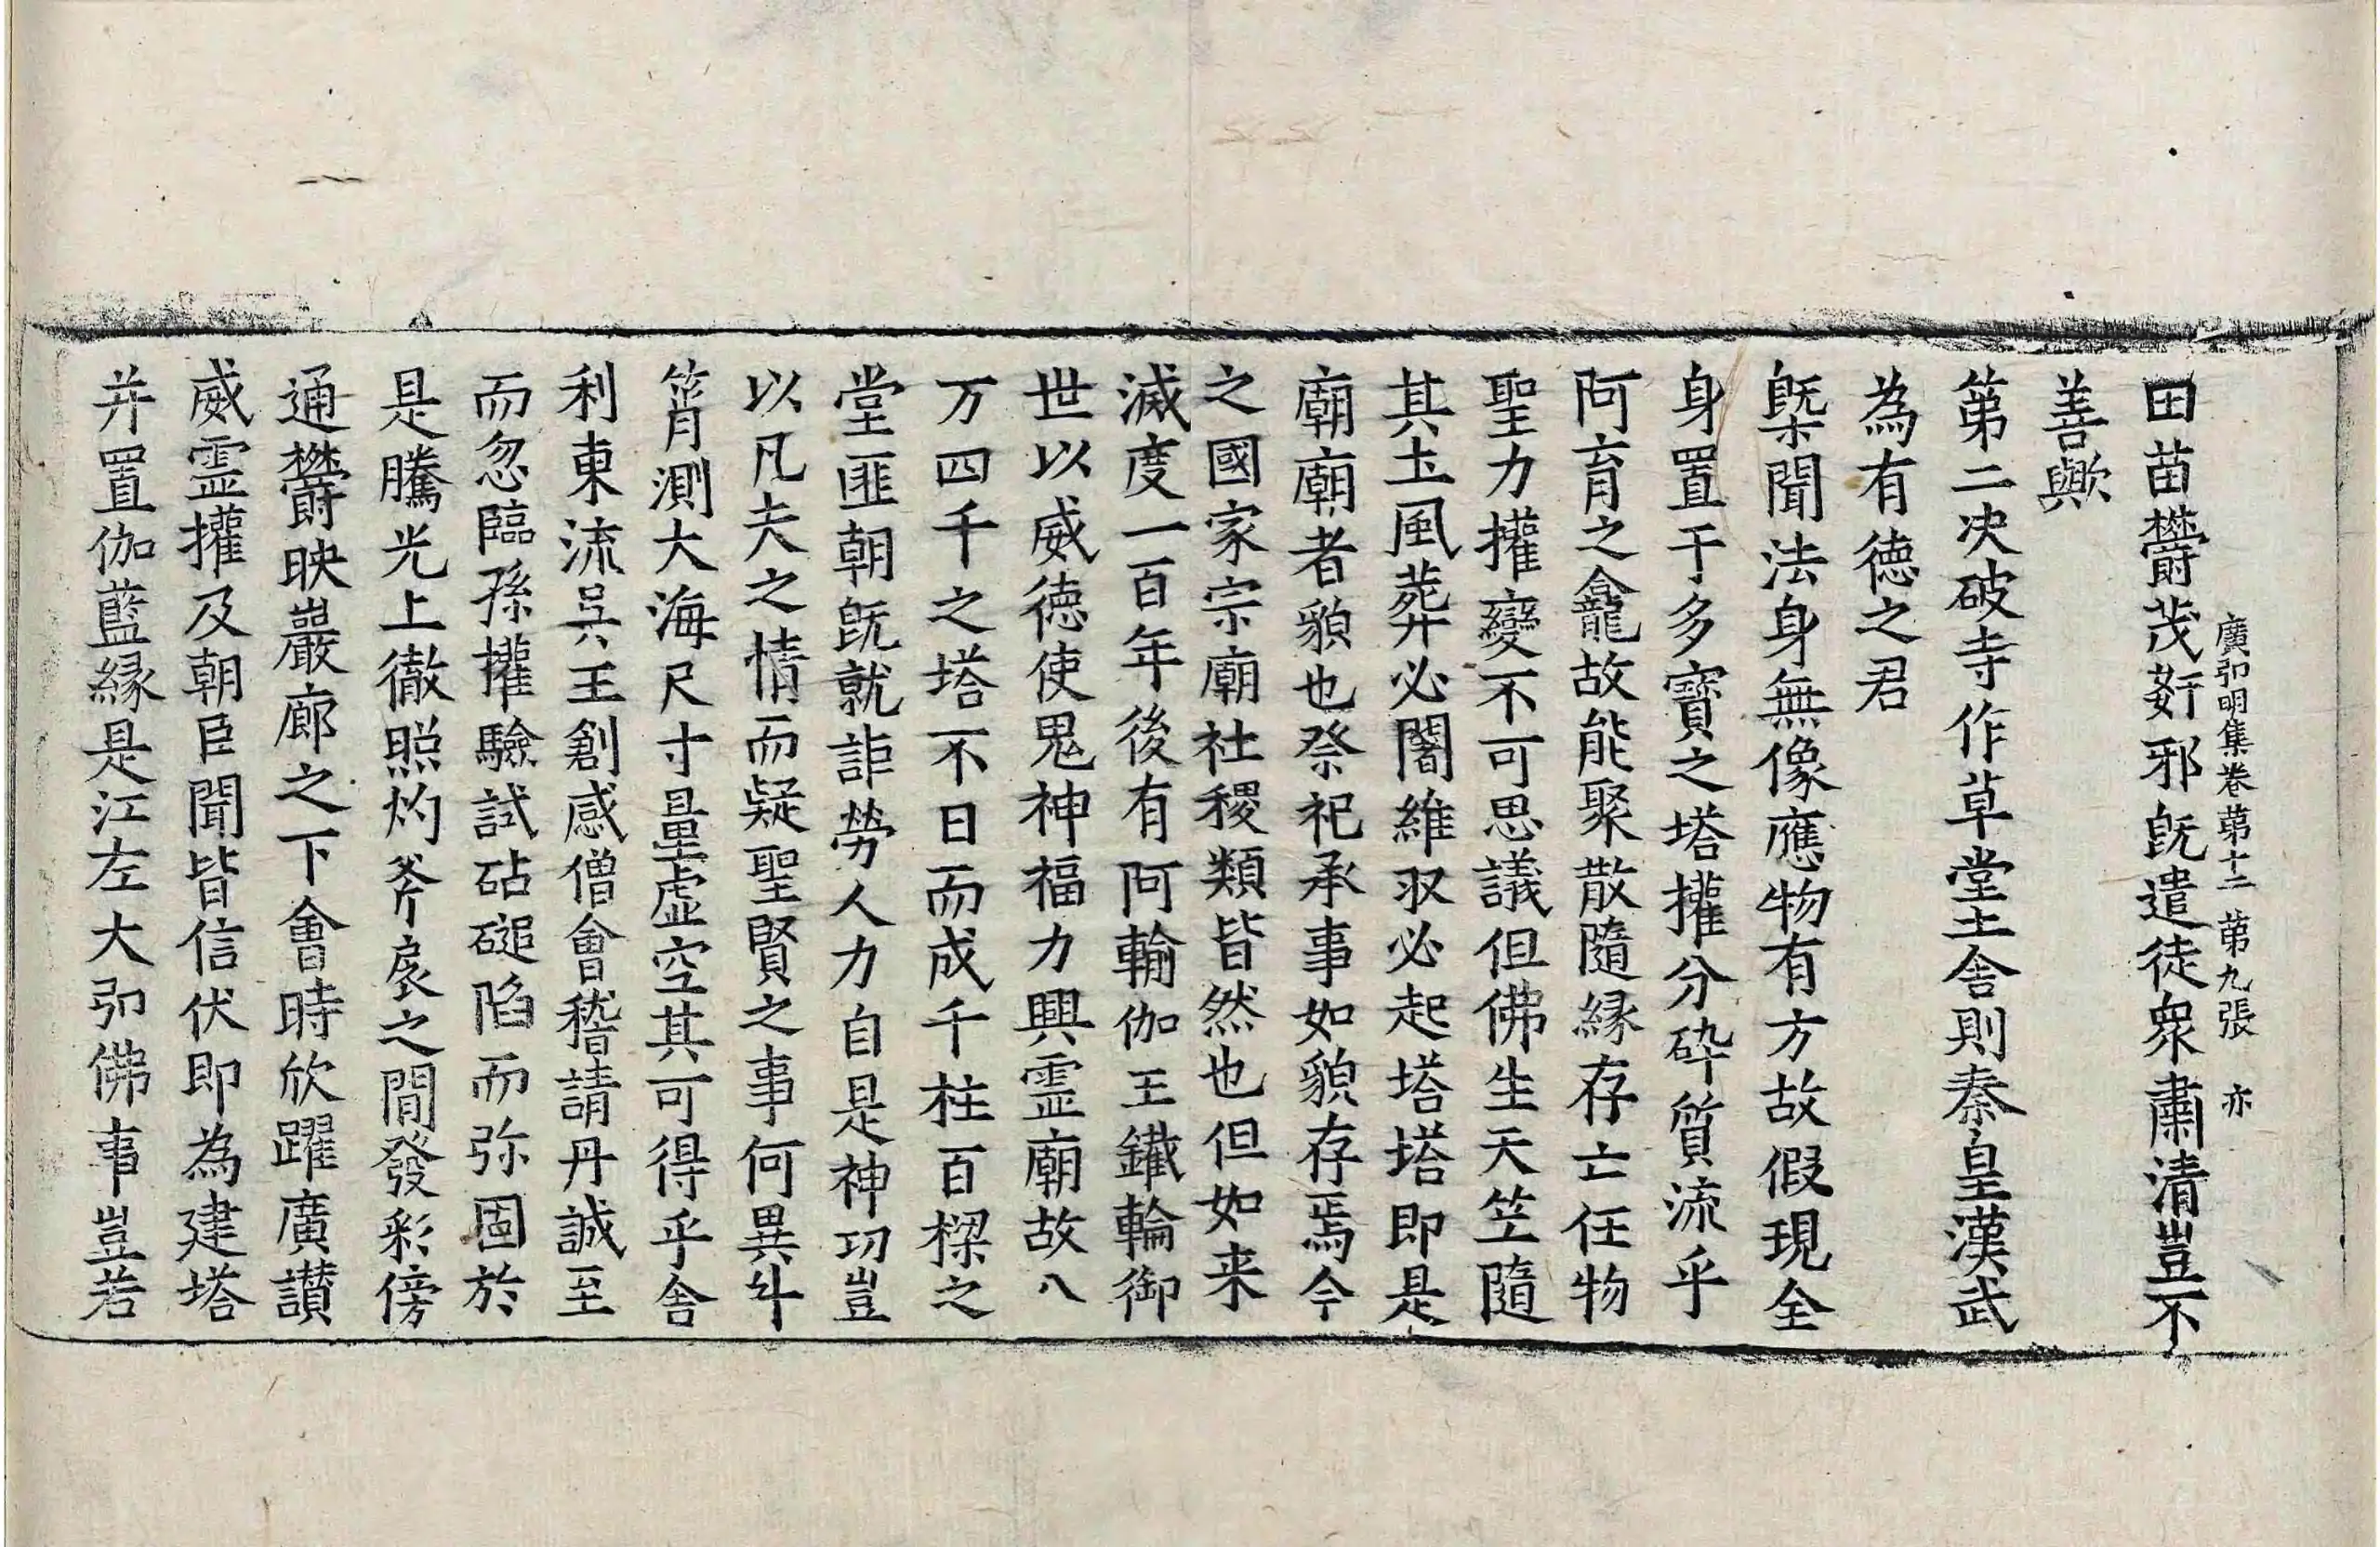 廣弘明集卷第十二 第九張 亦
田苗欝茂姧邪旣遣徒衆肅清豈不
善歟
第二决破寺作草堂土舍則秦皇漢武
為有德之君
槩聞法身無像應物有方故假現全
身置于多寶之塔權分碎質流乎
阿育之龕故能聚散隨縁存亡任物
聖力權變不可思議但佛生天笁隨
其土風葬必闍維収必起塔塔即是
廟廟者貌也祭祀承事如貌存焉今
之國家宗廟社稷類皆然也但如来
滅度一百年後有阿輸伽王鐵輪御
世以威德使鬼神福力興霊廟故八
万四千之塔不日而成千柱百樑之
堂匪朝旣就詎勞人力自是神功豈
以凡夫之情而疑聖賢之事何異斗
筲測大海尺寸量虛空其可得乎舍
利東流吳王創感僧會稽請丹誠至
而忽臨孫權驗試砧磓陷而弥固於
是騰光上徹照灼斧扆之間發彩傍
通欝映巖廊之下會時欣躍廣讃
威霊權及朝臣聞皆信伏即為建塔
并置伽藍縁是江左大弘佛事豈若